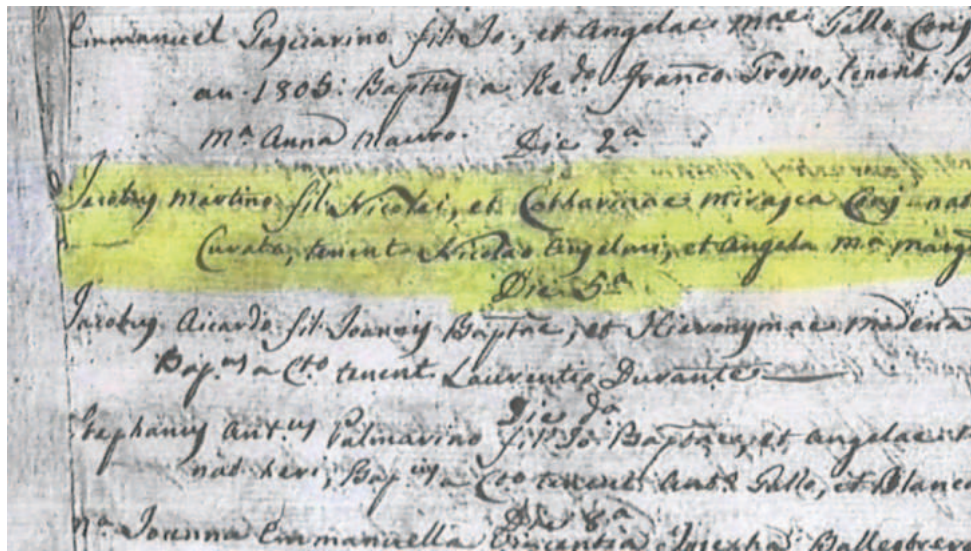 Emmanuel Pagliarino fil. Jo:, et Angelae M.ae Gallo Conj
an. 1805. Baptus a Re.do Franco Tropo, tenent. B
M.a Anna Mauro.
Die 2.a
Jacobus Martino fil. Nicolai, et Catharinae Miragca Conj. nat
Curato, tenent. Nicolao Angeleri, et Angela M.a Marg
Die 5.a
Jacobus Aicardo fil. Joannis Baptae, et Hieronymae Modena
Bap.us a C.to tenent. Laurentio Durante
Die d.a
Stephanus Ant.us Palmarino fil. Jo. Baptae, et Angelae
nat. heri, Bap.us a C.to tenent. Gallo, et Blanc
Die 8.a
M.a Joanna Emmanuella Vincentia